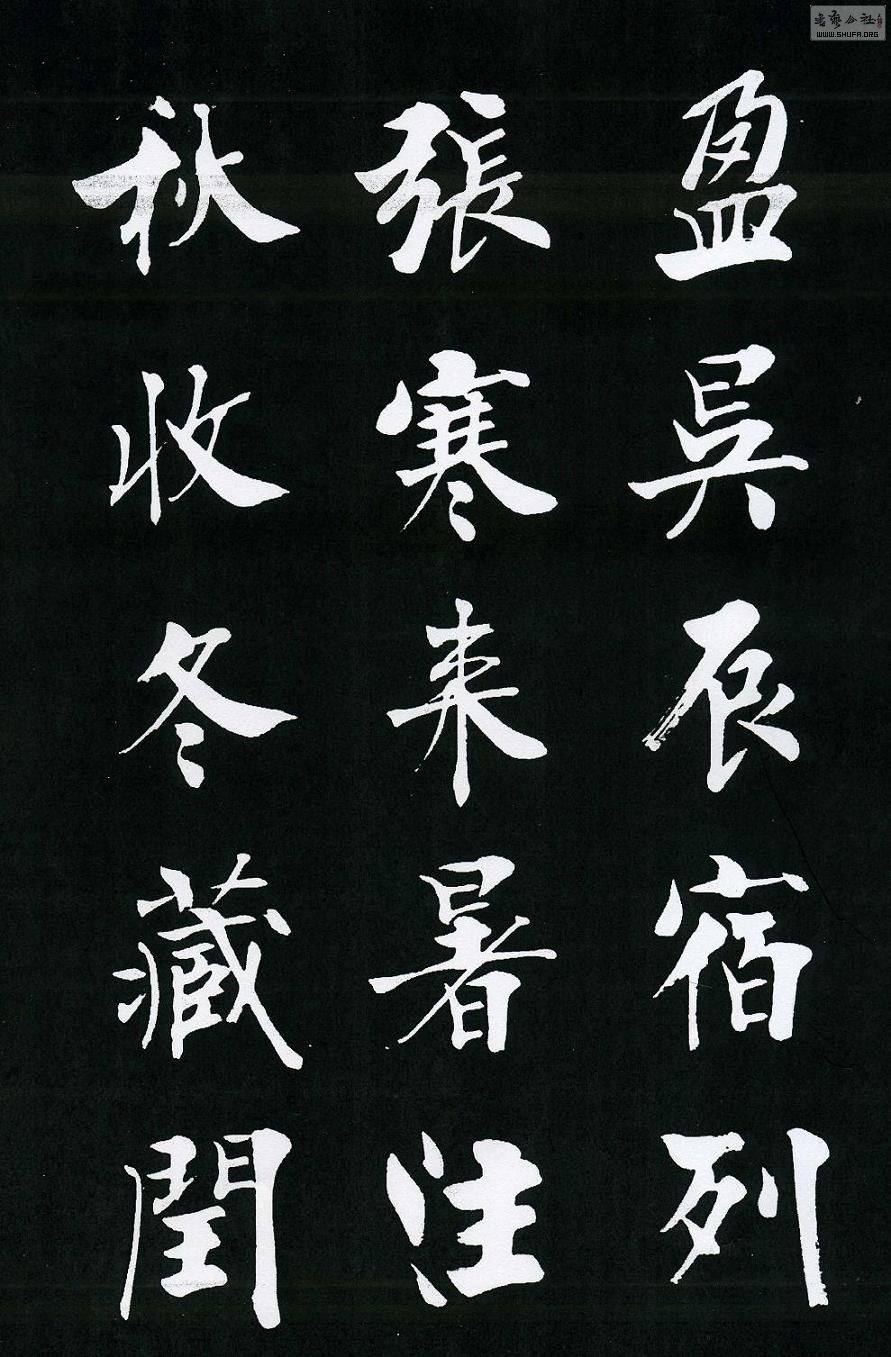 盈昃辰宿列
張寒来暑往
秋收冬藏閏
書藝公社
WWW.SHUFA.ORG